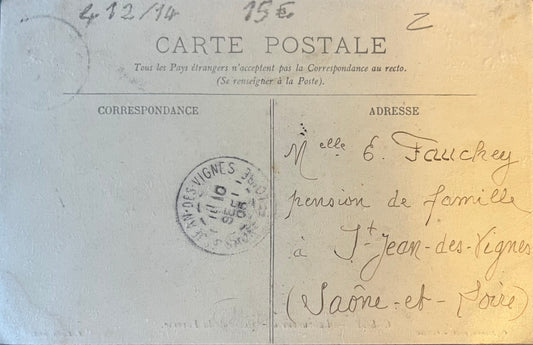 4 12/14 15€ 2
CARTE POSTALE
Tous les Pays étrangers n'acceptent pas la Correspondance au recto.
(Se renseigner à la Poste).
CORRESPONDANCE
ADRESSE
Melle E. Fauckey
pension de famille
à St Jean-des-Vignes
(Saône-et-Loire)
JEAN-DES-VIGNES
10
SEPT
05